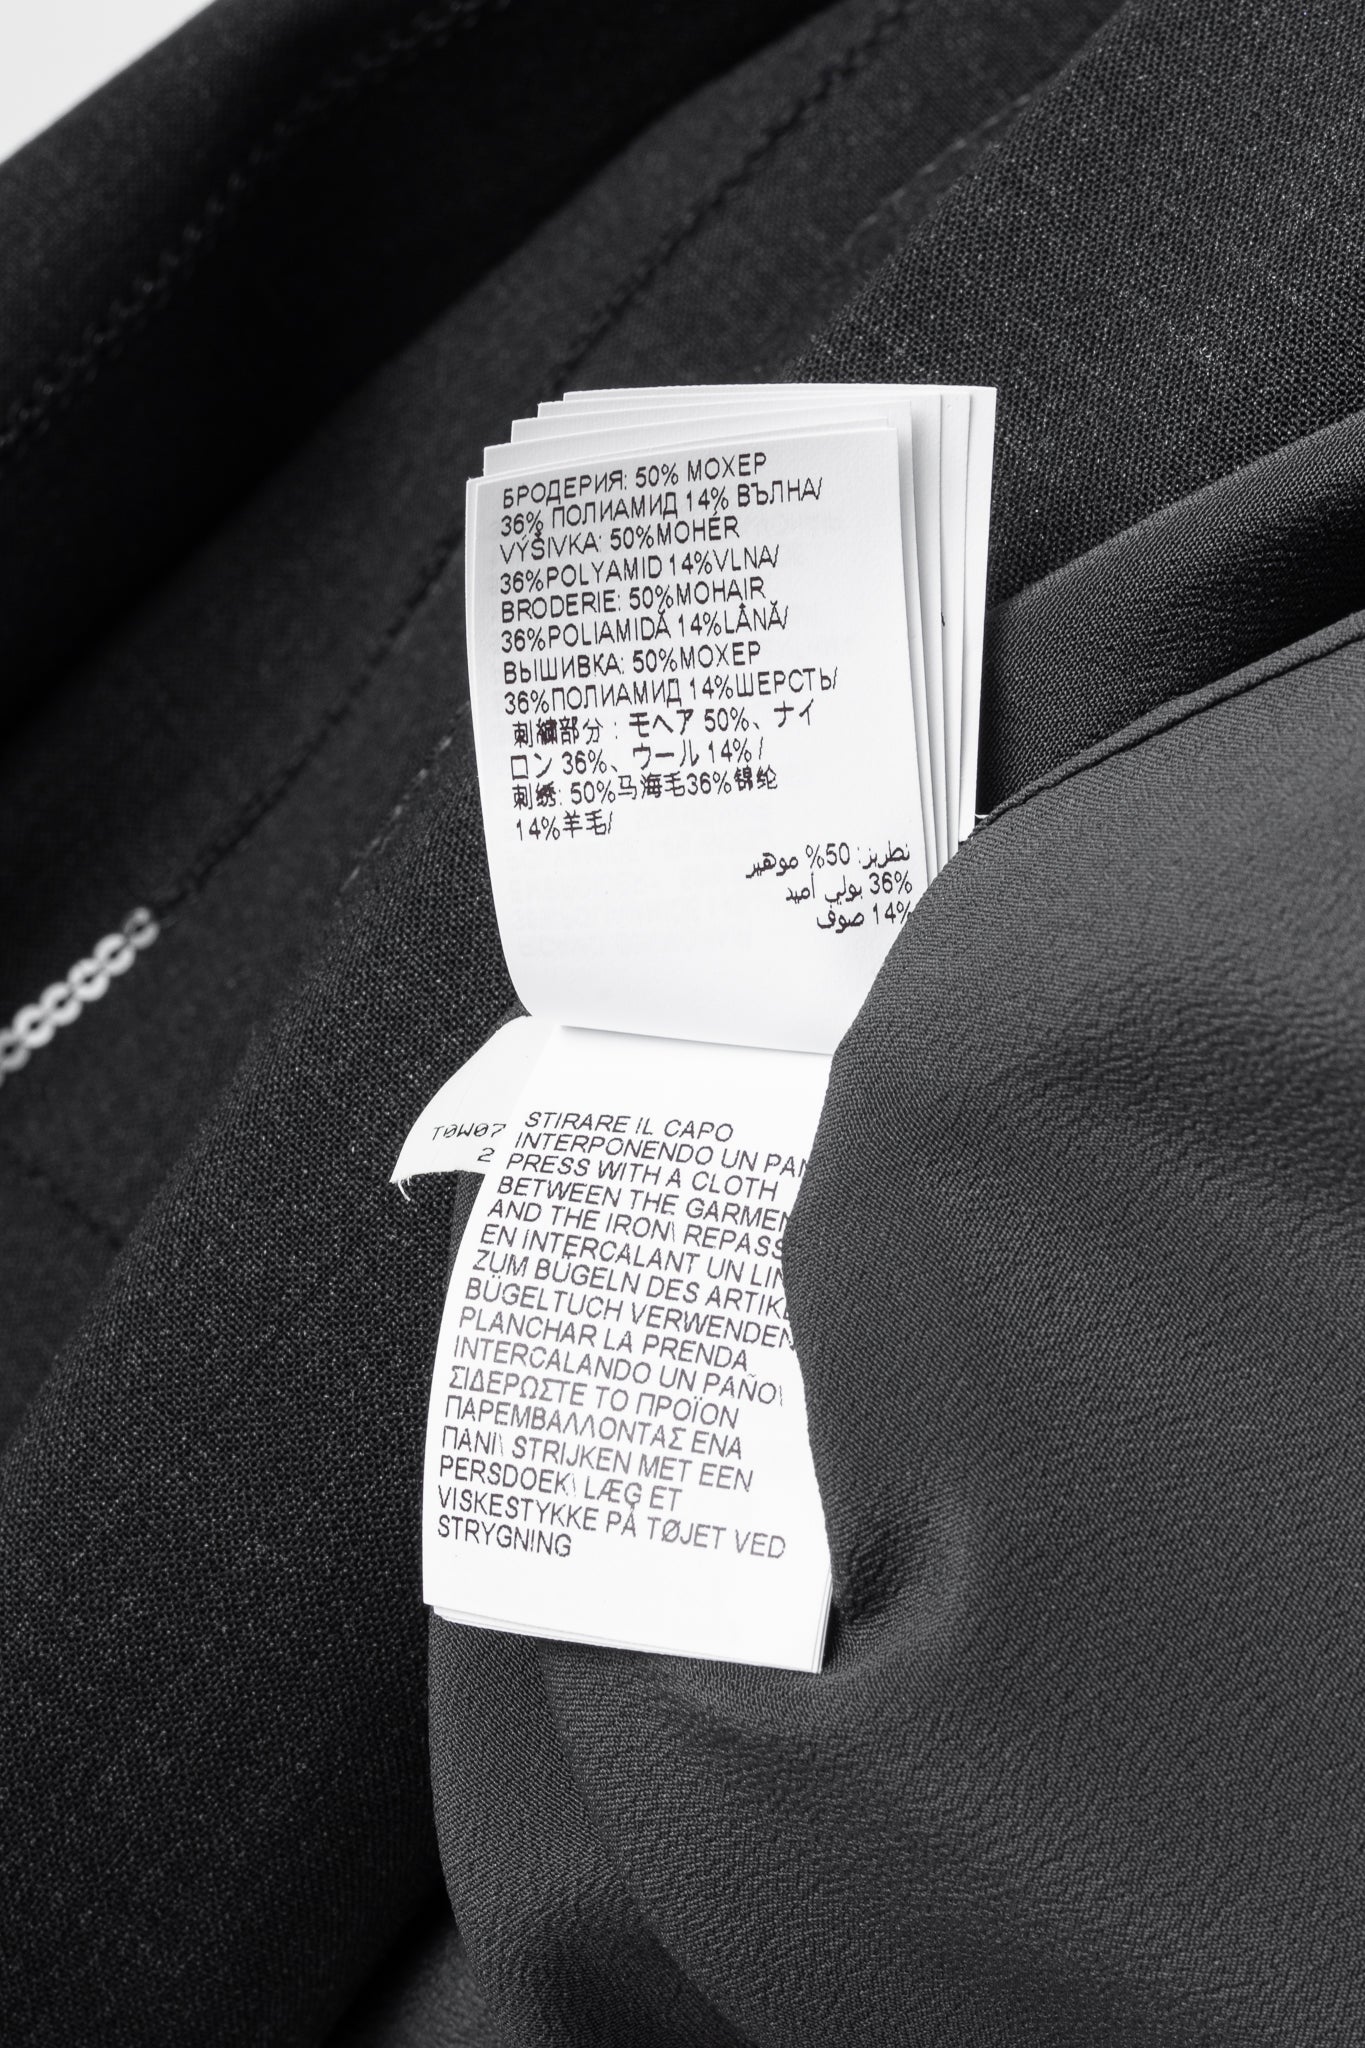 БРОДЕРИЯ: 50% МОХЕР
36% ПОЛИАМИД 14% ВЪЛНА/
VÝŠIVKA: 50%MOHÉR
36%POLYAMID 14%VLNA/
BRODERIE: 50%MOHAIR
36%POLIAMIDĂ 14%LÂNĂ/
ВЫШИВКА: 50%МОХЕР
36%ПОЛИАМИД 14%ШЕРСТЬ/
刺繍部分：モヘア 50%、ナイ
ロン 36%、ウール 14% /
刺绣: 50%马海毛36%锦纶
14%羊毛/
تطريز: 50% موهير
36% بولي أميد
14% صوف
T0W07
2
STIRARE IL CAPO
INTERPONENDO UN PAN
PRESS WITH A CLOTH
BETWEEN THE GARMEN
AND THE IRON\ REPASS
EN INTERCALANT UN LIN
ZUM BÜGELN DES ARTIK
BÜGELTUCH VERWENDEN
PLANCHAR LA PRENDA
INTERCALANDO UN PAÑO\
ΣΙΔΕΡΩΣΤΕ ΤΟ ΠΡΟΪΟΝ
ΠΑΡΕΜΒΑΛΛΟΝΤΑΣ ΕΝΑ
ΠΑΝΙ\ STRIJKEN MET EEN
PERSDOEK\ LÆG ET
VISKESTYKKE PÅ TØJET VED
STRYGNING